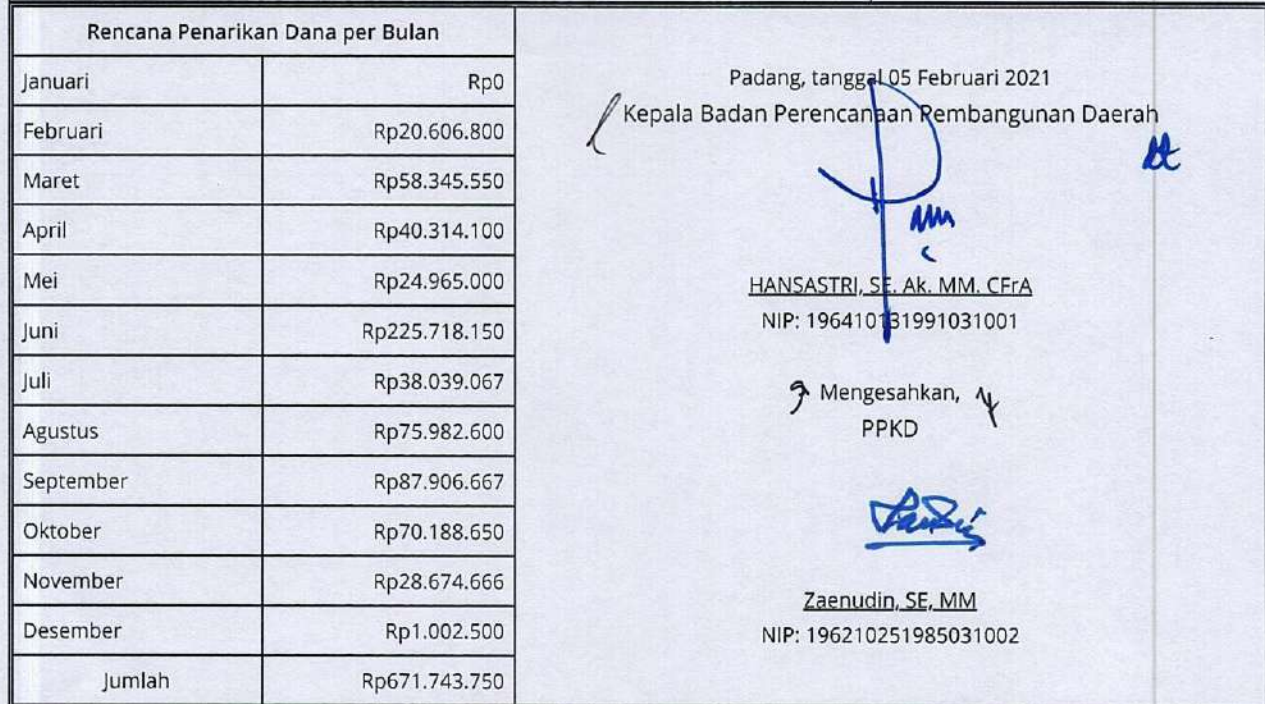 Rencana Penarikan Dana per Bulan
Januari Rp0
Februari Rp20.606.800
Maret Rp58.345.550
April Rp40.314.100
Mei Rp24.965.000
Juni Rp225.718.150
Juli Rp38.039.067
Agustus Rp75.982.600
September Rp87.906.667
Oktober Rp70.188.650
November Rp28.674.666
Desember Rp1.002.500
Jumlah Rp671.743.750
Padang, tanggal 05 Februari 2021
Kepala Badan Perencanaan Pembangunan Daerah
HANSASTRI, SE. Ak. MM. CFrA
NIP: 196410131991031001
Mengesahkan,
PPKD
Zaenudin, SE, MM
NIP: 196210251985031002